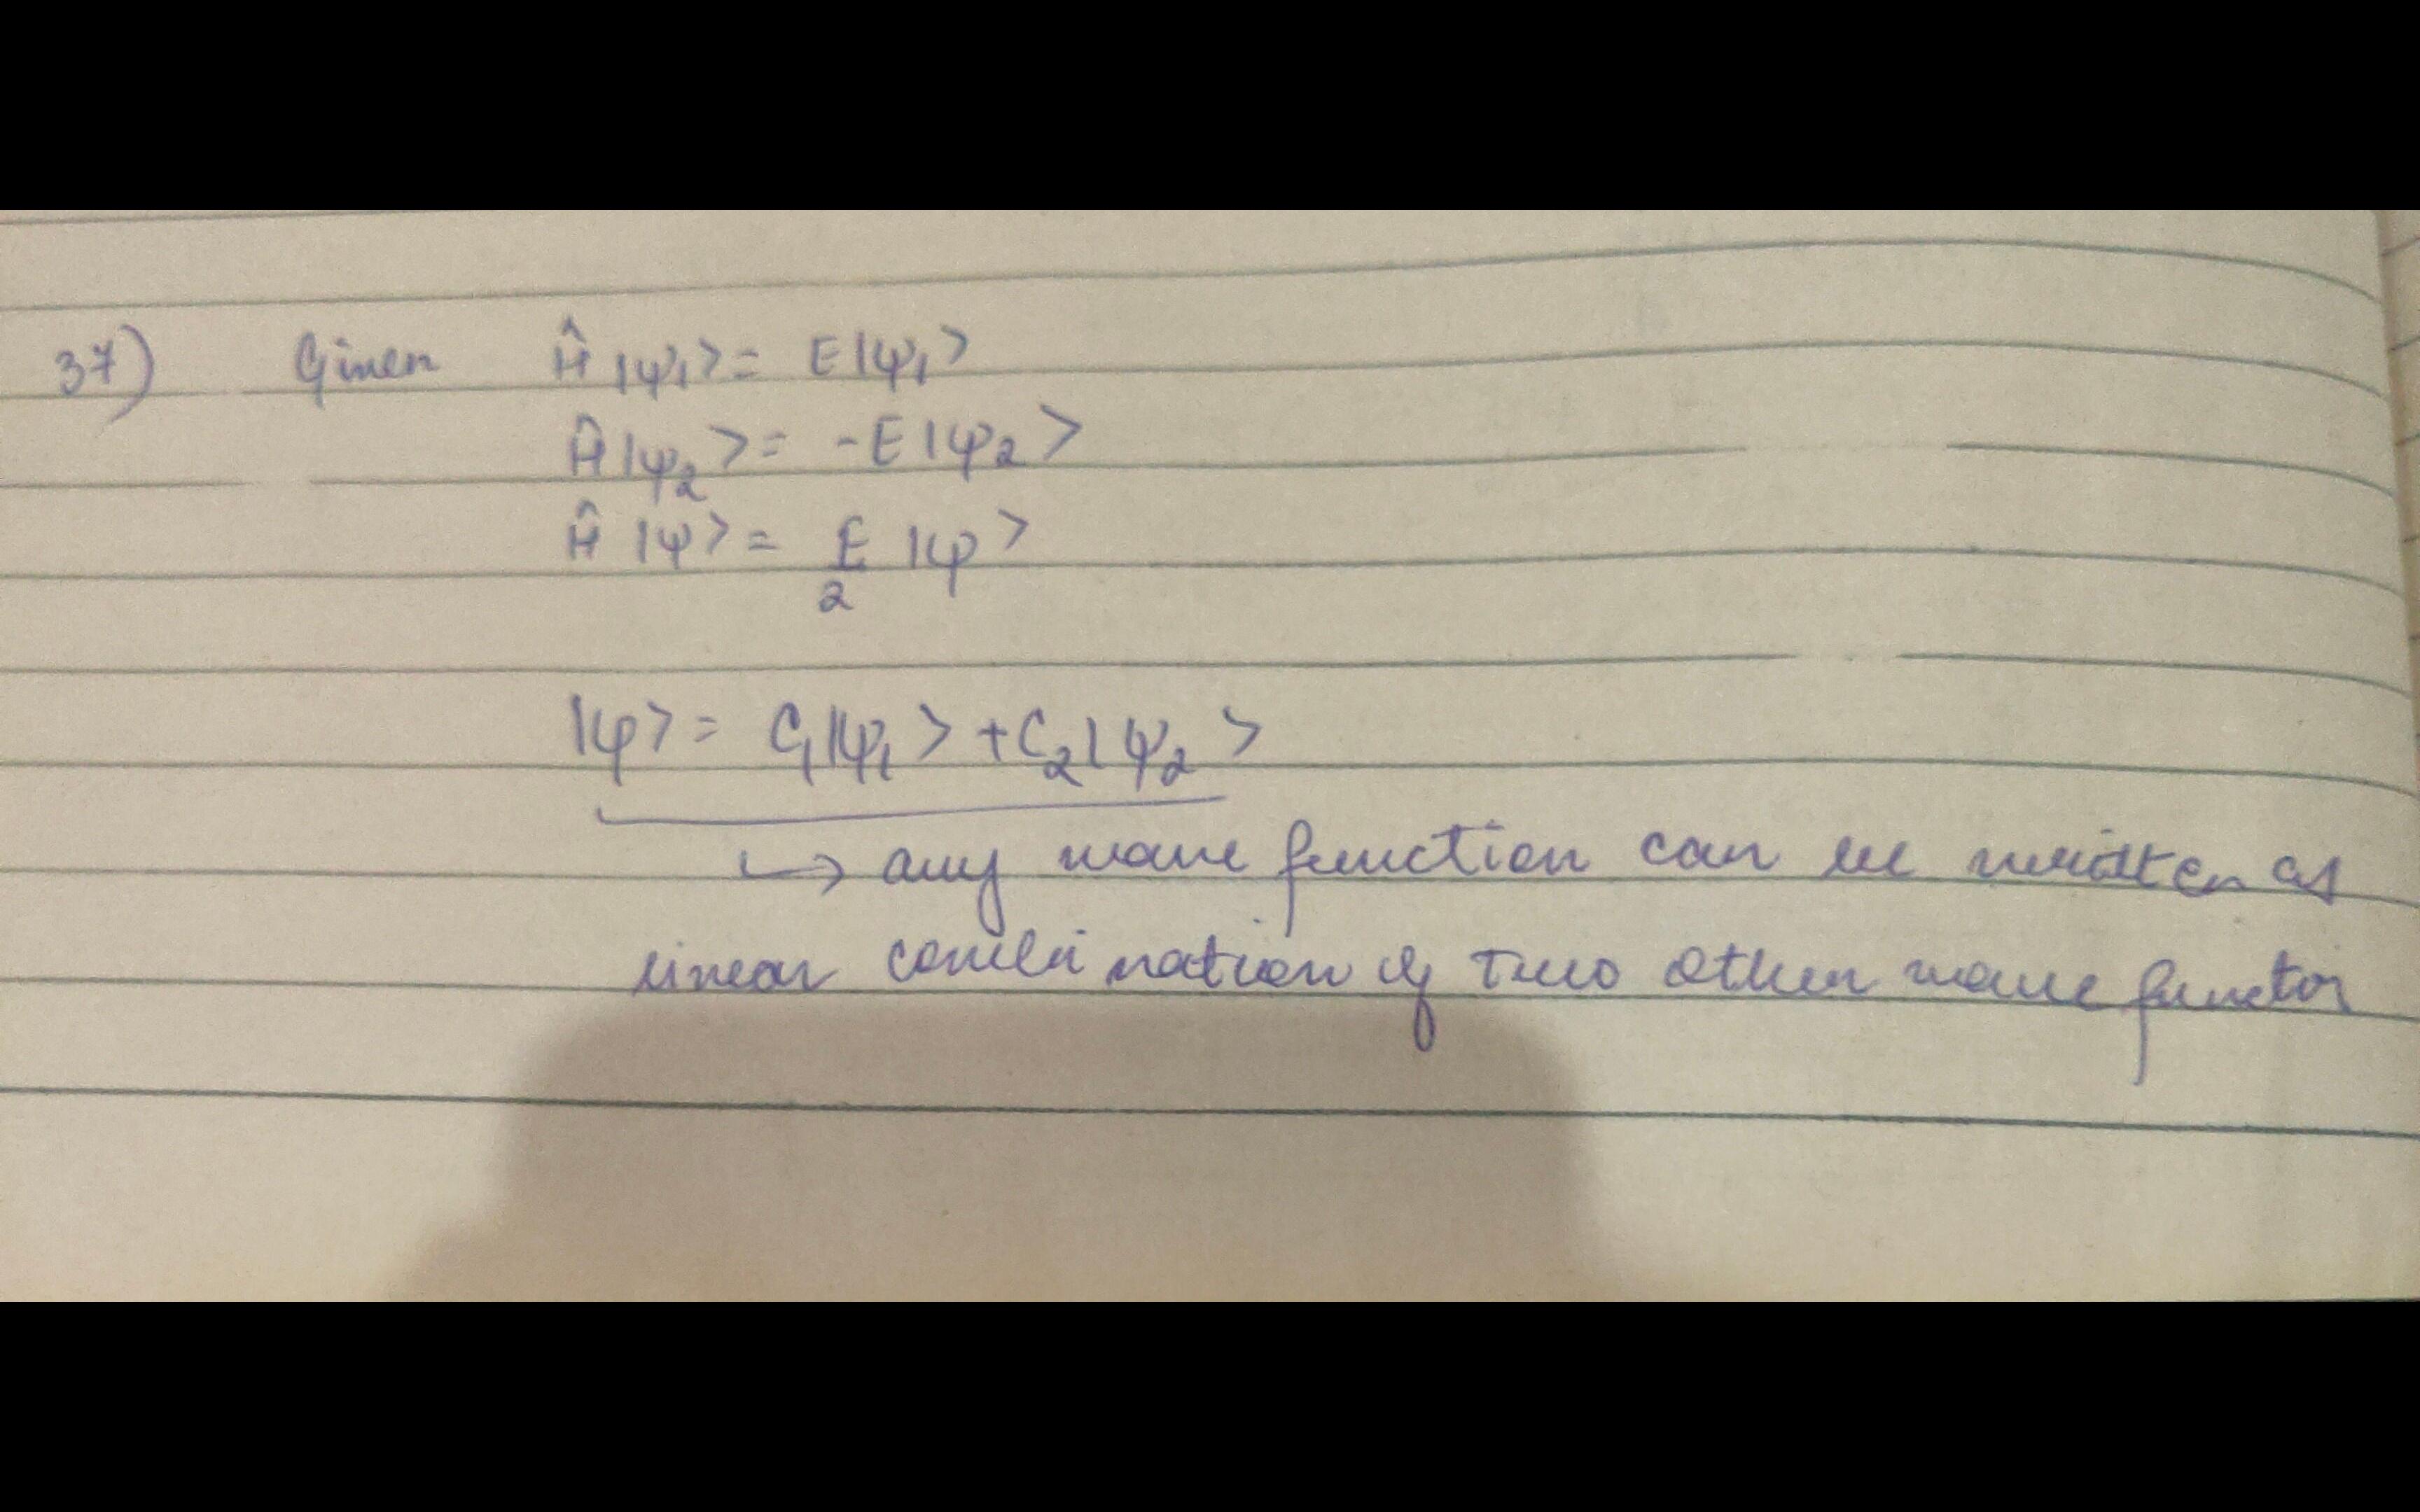 37) Given Ĥ|ψ₁> = E|ψ₁>
Ĥ|ψ₂> = -E|ψ₂>
Ĥ|ψ> = E/2 |ψ>
|ψ> = C₁|ψ₁> + C₂|ψ₂>
↳ any wave function can be written as
linear combination of two other wave functon